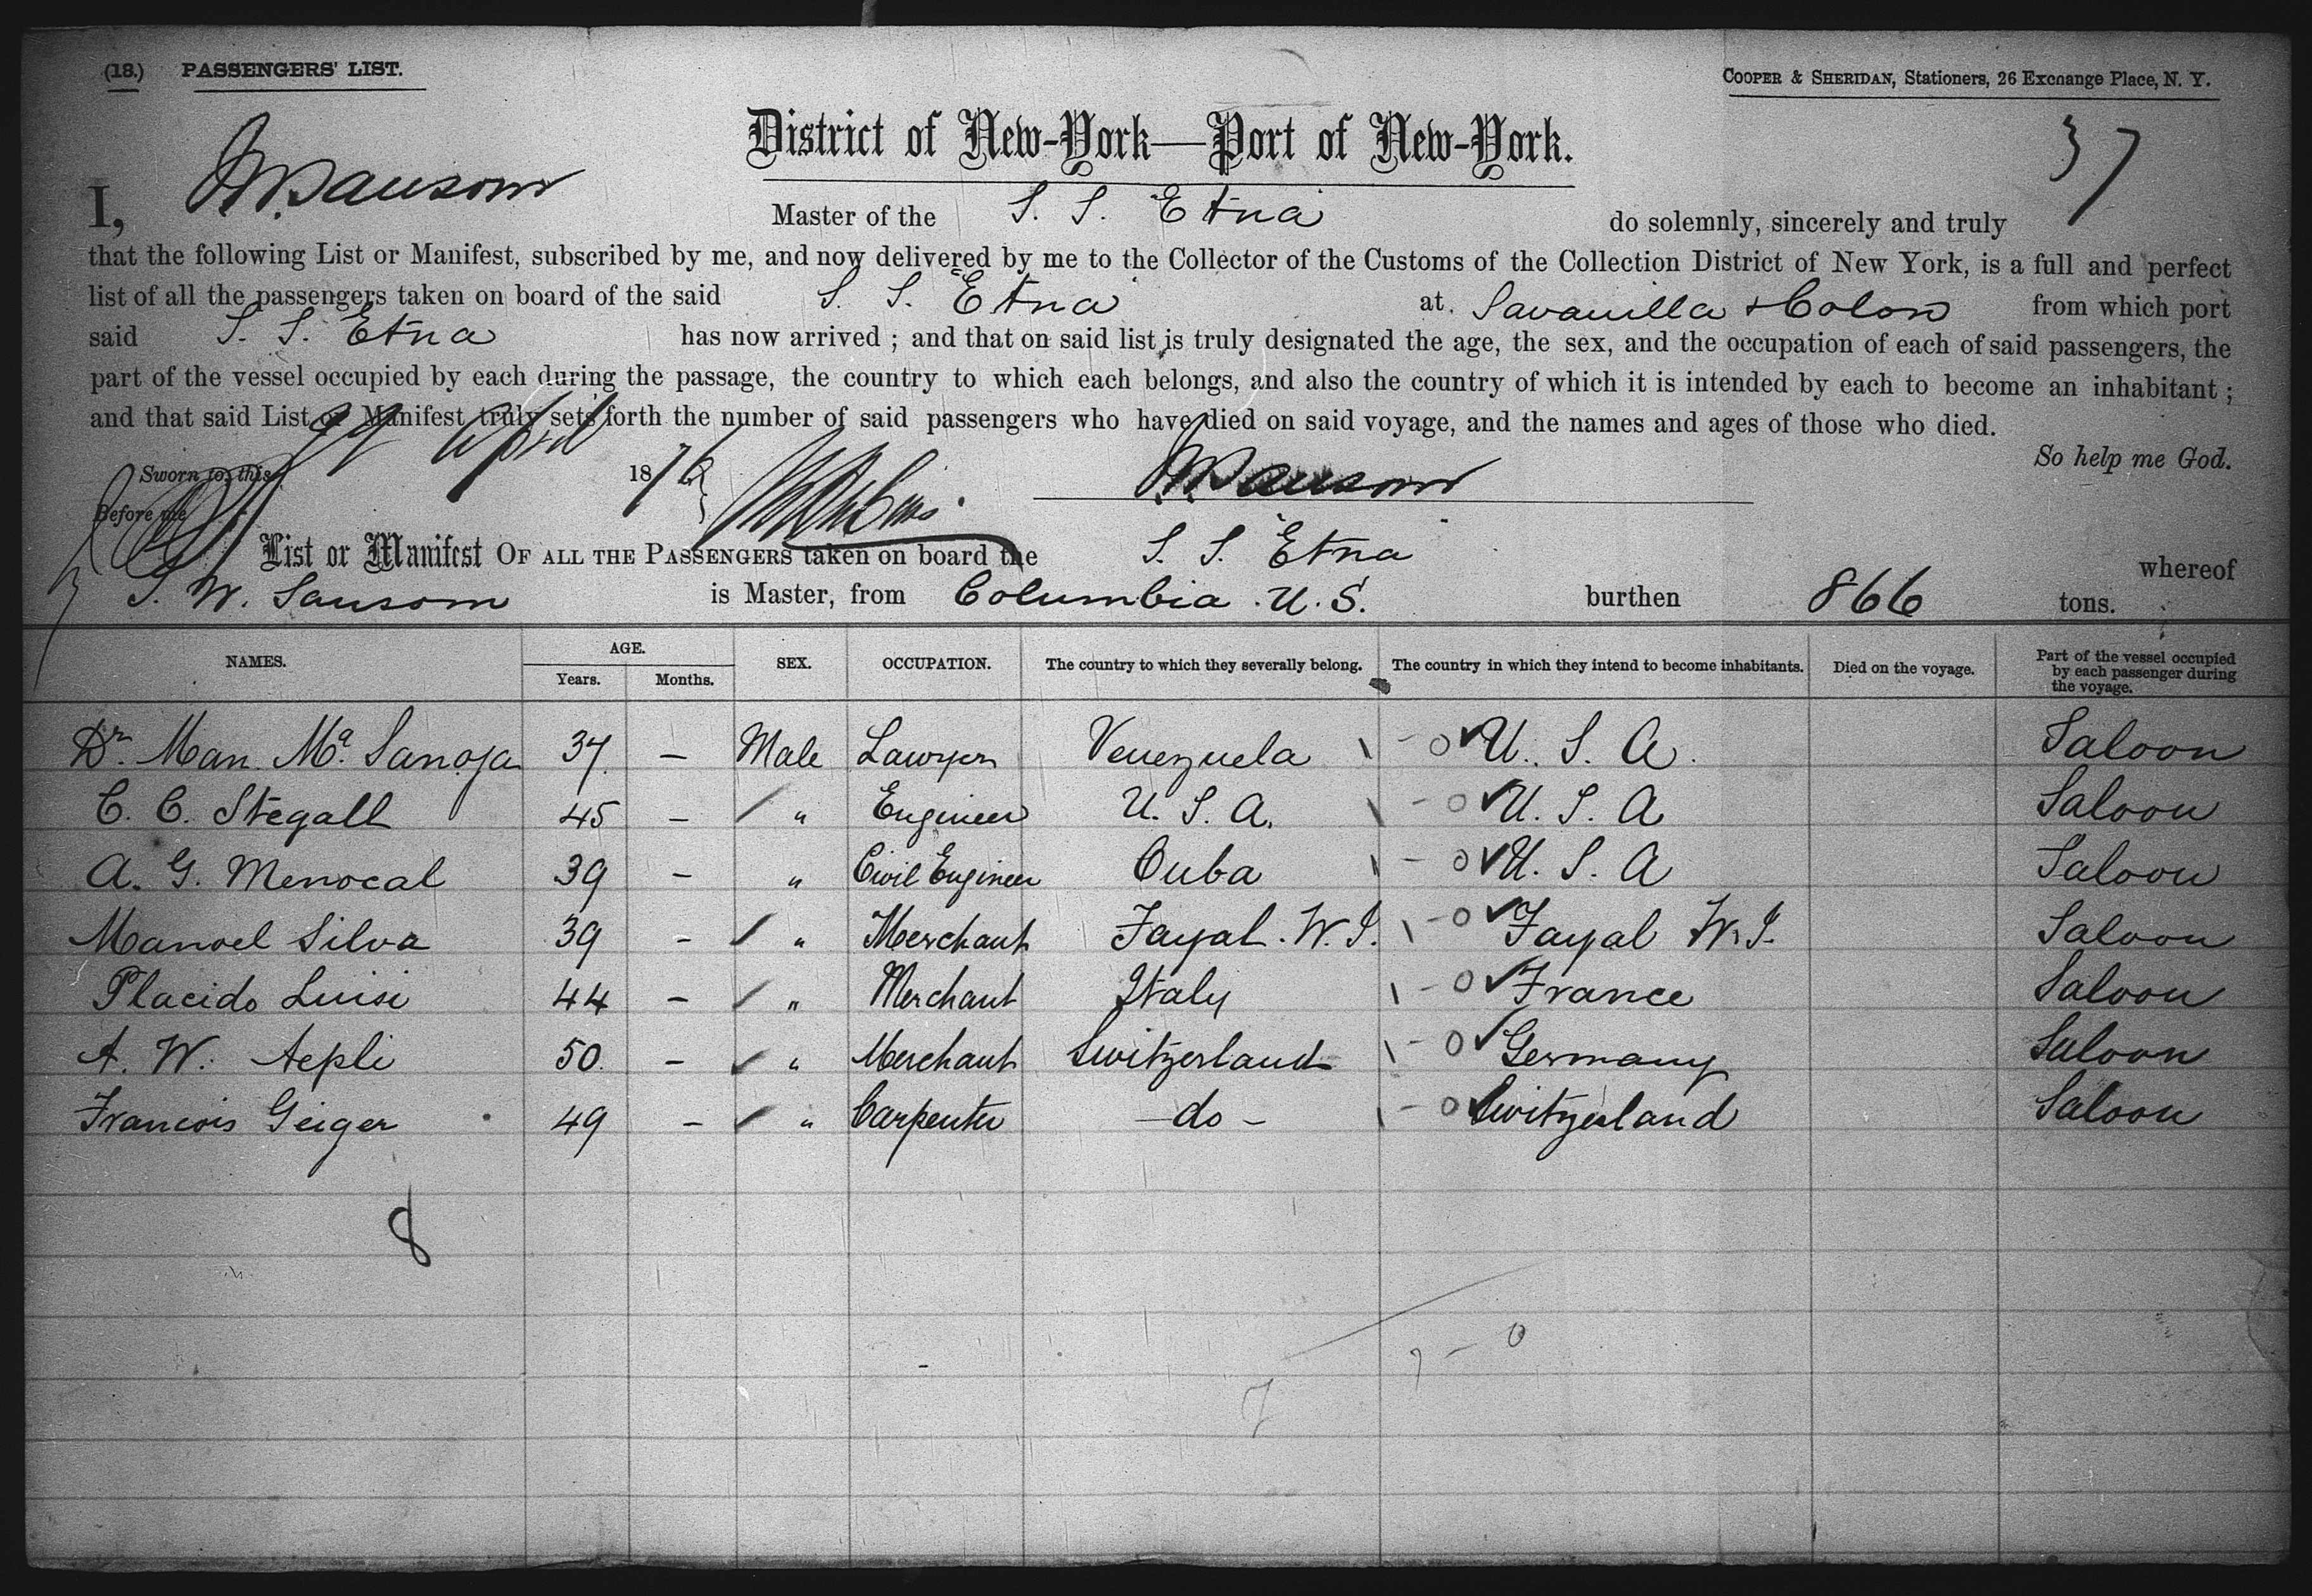 (18.) PASSENGERS' LIST.
COOPER & SHERIDAN, Stationers, 26 Exchange Place, N. Y.
District of New-York—Port of New-York.
37
I, J.W. Sansom Master of the S. S. Etna do solemnly, sincerely and truly
that the following List or Manifest, subscribed by me, and now delivered by me to the Collector of the Customs of the Collection District of New York, is a full and perfect
list of all the passengers taken on board of the said S. S. Etna at. Savanilla & Colon from which port
said S. S. Etna has now arrived ; and that on said list is truly designated the age, the sex, and the occupation of each of said passengers, the
part of the vessel occupied by each during the passage, the country to which each belongs, and also the country of which it is intended by each to become an inhabitant ;
and that said List or Manifest truly sets forth the number of said passengers who have died on said voyage, and the names and ages of those who died.
So help me God.
Sworn to this April 1876 J.W. Sansom
Before me
List or Manifest OF ALL THE PASSENGERS taken on board the S. S. Etna whereof
J. W. Sansom is Master, from Columbia . U. S. burthen 866 tons.
NAMES. AGE. Years. Months. SEX. OCCUPATION. The country to which they severally belong. The country in which they intend to become inhabitants. Died on the voyage. Part of the vessel occupied by each passenger during the voyage.
Dr. Man. Ma. Sanoja 37. — Male Lawyer Venezuela \ - 0 ✓ U. S. A. Saloon
C. C. Stegall 45 — " Engineer U. S. A. \ - 0 ✓ U. S. A Saloon
A. G. Menocal 39 — " Civil Engineer Cuba \ - 0 ✓ U. S. A Saloon
Manoel Silva 39 - " Merchant Fayal. W. I. \ - 0 ✓ Fayal W. I. Saloon
Placido Luisi 44 — " Merchant Italy \ - 0 ✓ France Saloon
A. W. Aepli 50. — " Merchant Switzerland \ - 0 ✓ Germany Saloon
Francois Geiger 49 — " Carpenter — do — \ - 0 ✓ Switzerland Saloon
8
7 - 0
7